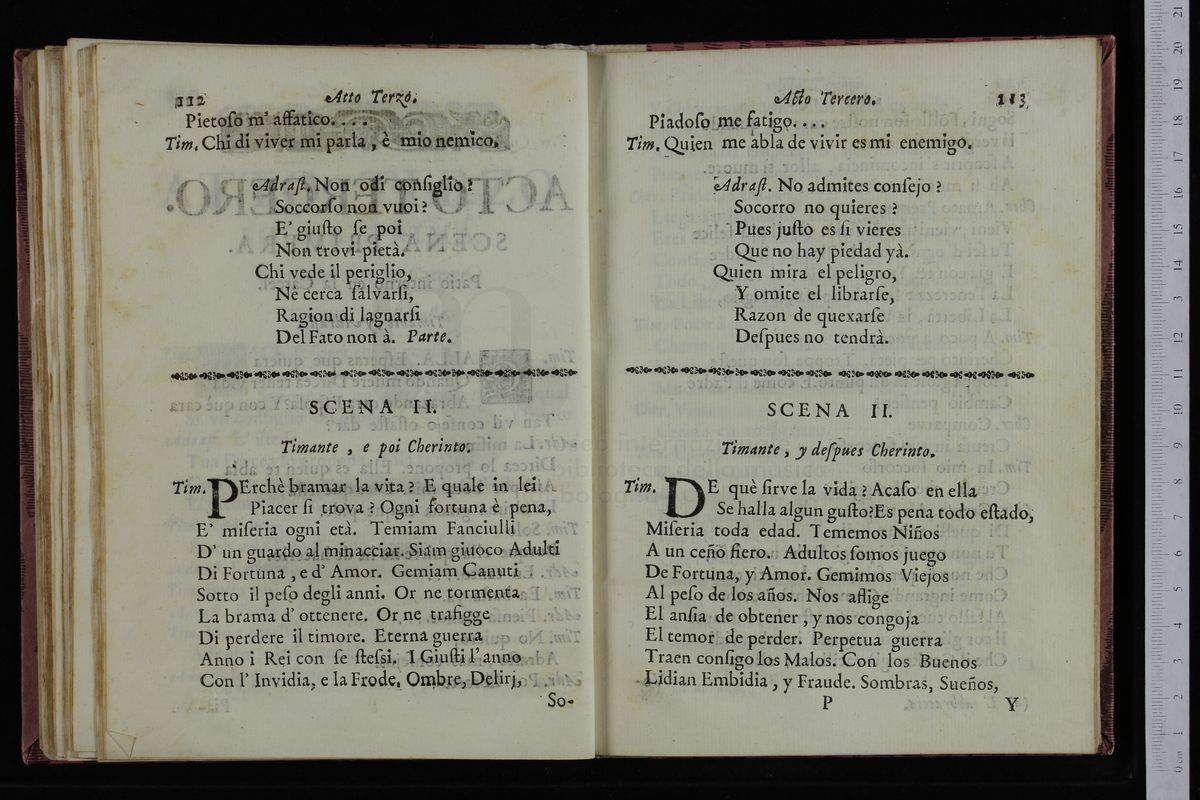 112 Atto Terzo.
Pietoſo m' affatico. . . .
Tim. Chi di viver mi parla, è mio nemico.
Adraſt. Non odi conſiglio?
Soccorſo non vuoi?
E' giuſto ſe poi
Non trovi pietà.
Chi vede il periglio,
Nè cerca ſalvarſi,
Ragion di lagnarſi
Del Fato non à. Parte.
SCENA II.
Timante, e poi Cherinto.
Tim. PErchè bramar la vita? E quale in lei
Piacer ſi trova? Ogni fortuna è pena,
E' miſeria ogni età. Temiam Fanciulli
D' un guardo al minacciar. Siam giuoco Adulti
Di Fortuna, e d' Amor. Gemiam Canuti
Sotto il peſo degli anni. Or ne tormenta
La brama d' ottenere. Or ne trafigge
Di perdere il timore. Eterna guerra
Anno i Rei con ſe ſteſsi. I Giuſti l' anno
Con l' Invidia, e la Frode. Ombre, Delirj,
So-
Acto Tercero. 113
Piadoſo me fatigo. . . .
Tim. Quien me abla de vivir es mi enemigo.
Adraſt. No admites conſejo?
Socorro no quieres?
Pues juſto es ſi vieres
Que no hay piedad yà.
Quien mira el peligro,
Y omite el librarſe,
Razon de quexarſe
Deſpues no tendrà.
SCENA II.
Timante, y deſpues Cherinto.
Tim. DE què ſirve la vida? Acaſo en ella
Se halla algun guſto? Es pena todo eſtado,
Miſeria toda edad. Tememos Niños
A un ceño fiero. Adultos ſomos juego
De Fortuna, y Amor. Gemimos Viejos
Al peſo de los años. Nos aflige
El anſia de obtener, y nos congoja
El temor de perder. Perpetua guerra
Traen conſigo los Malos. Con los Buenos
Lidian Embidia, y Fraude. Sombras, Sueños,
P Y